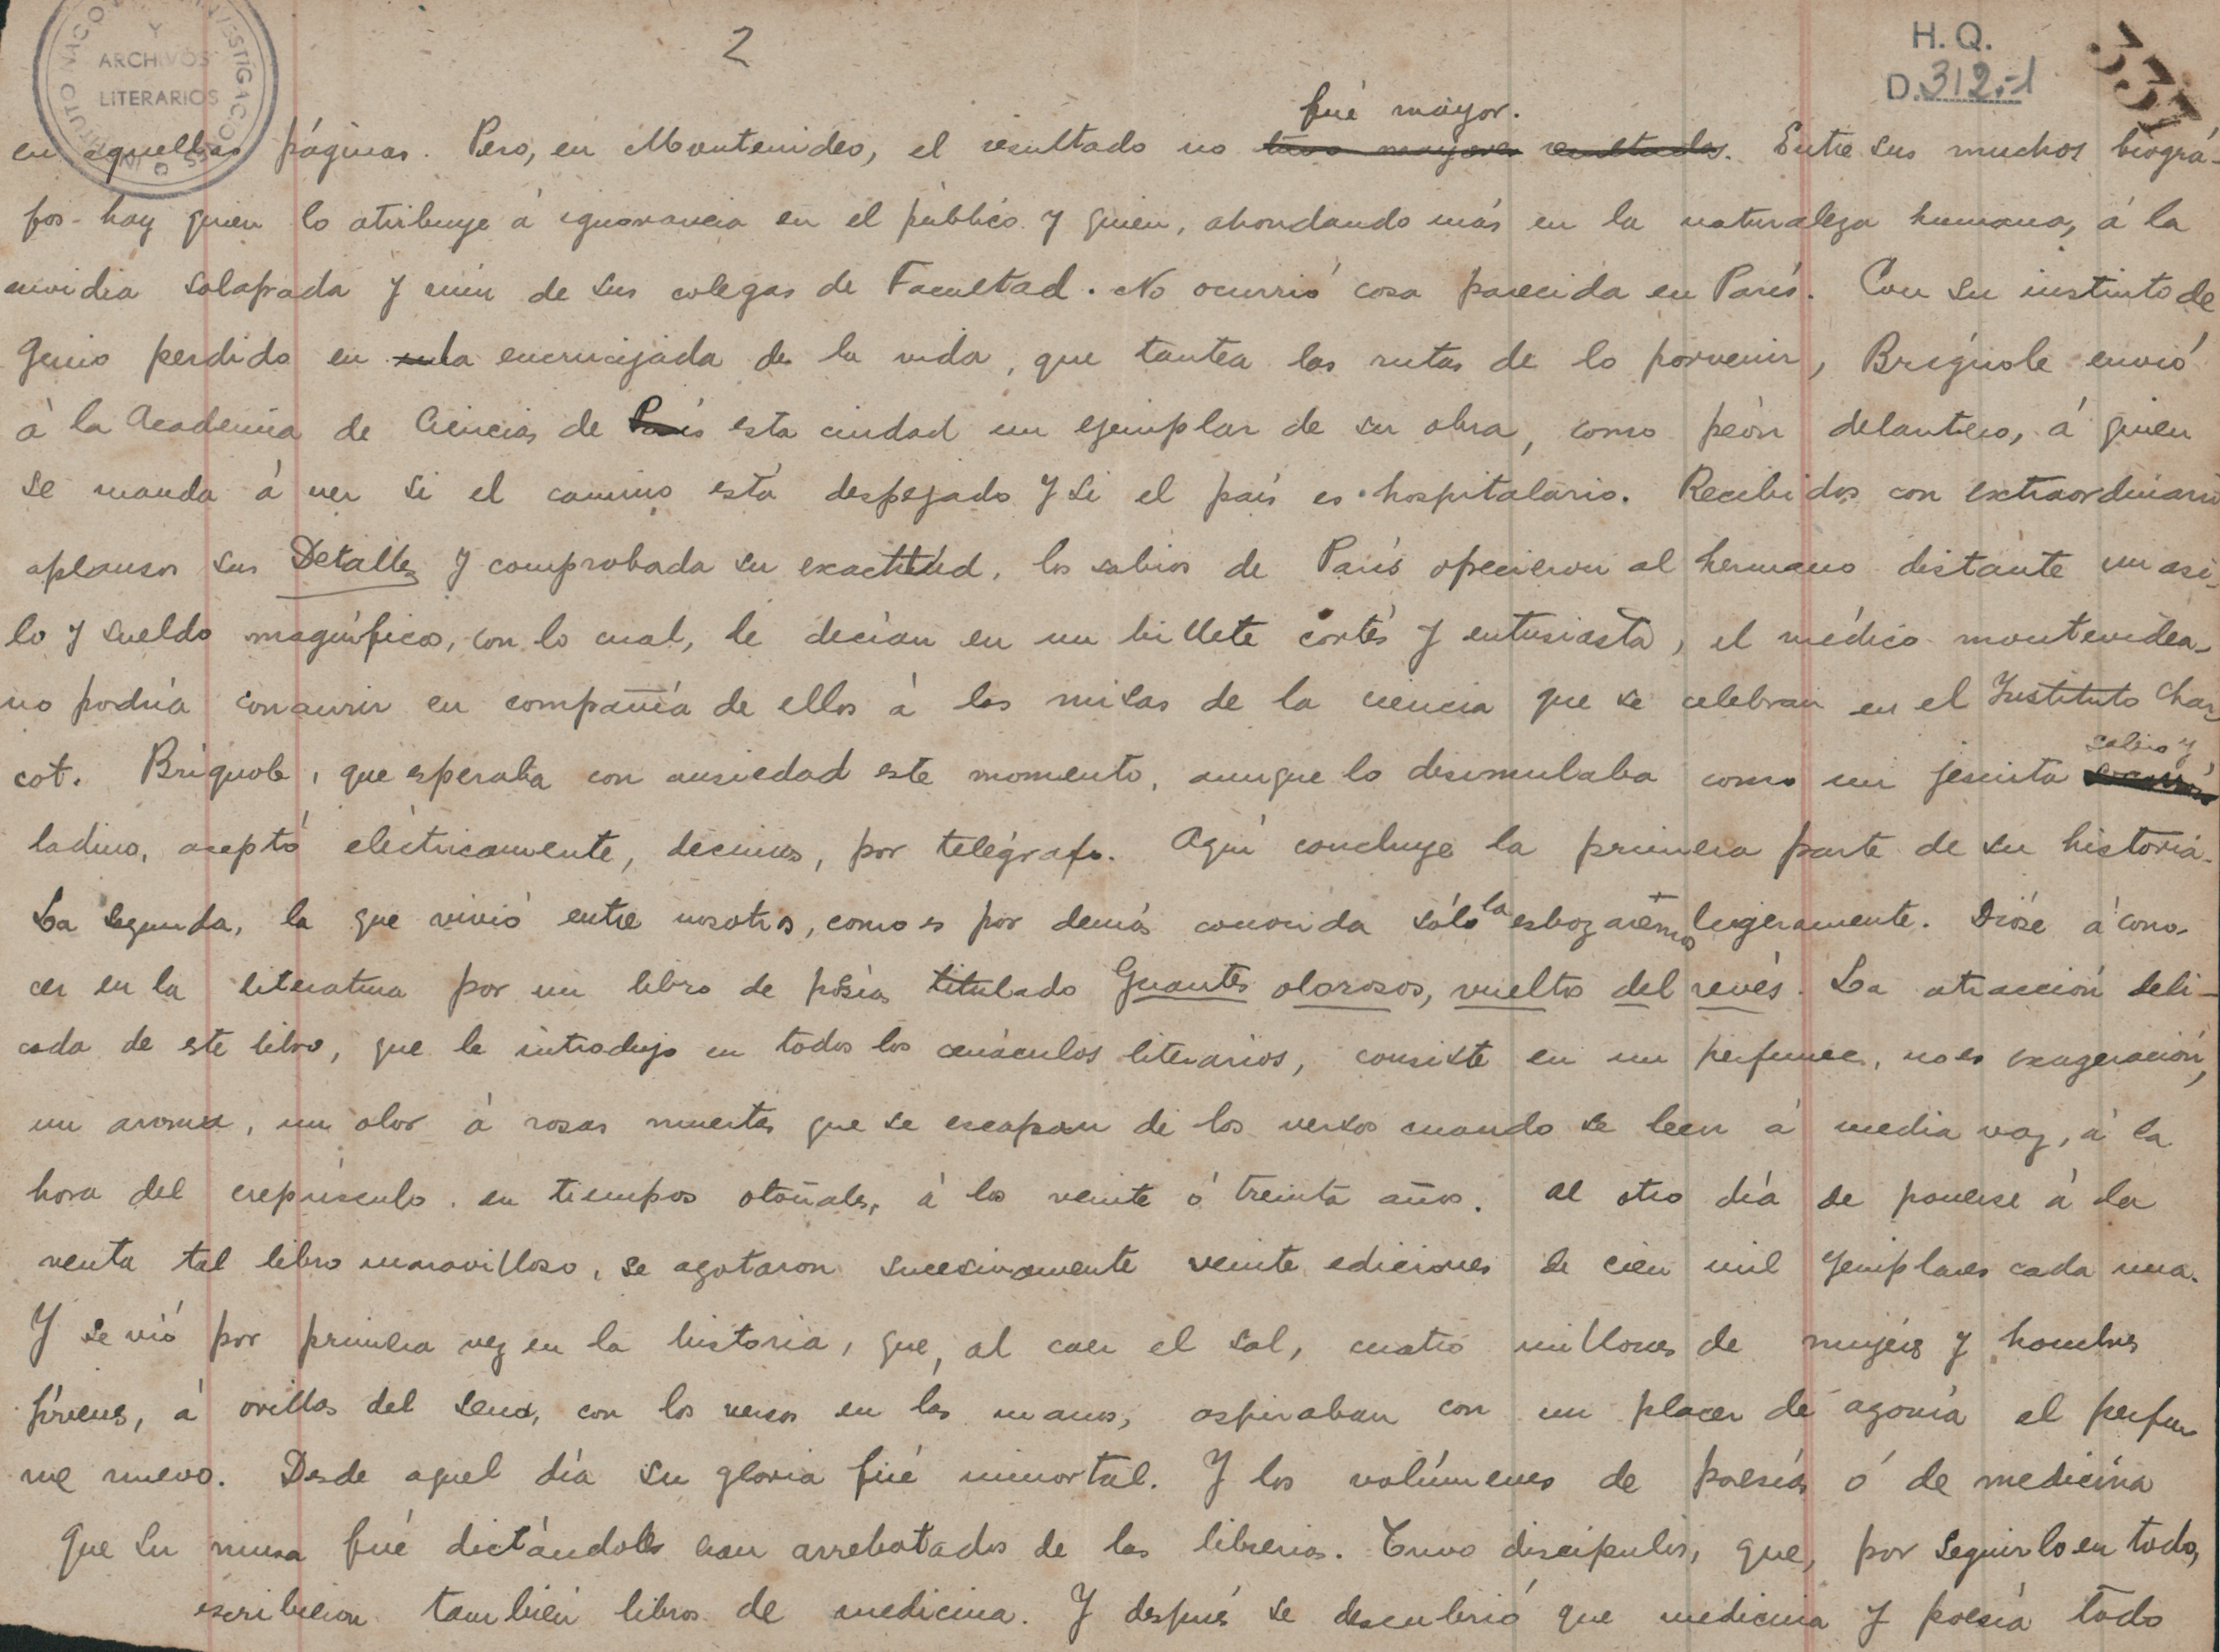 2
H. Q.
D. 312.-1
337
ARCHIVOS
LITERARIOS
fué mayor.
en aquellas páginas. Pero, en Montevideo, el resultado no tuvo mayores resultados. Entre sus muchos biógra-
fos hay quien lo atribuye á ignorancia en el público y quien, ahondando más en la naturaleza humana, á la
envidia solapada y ruin de sus colegas de Facultad. No ocurrió cosa parecida en París. Con su instinto de
genio perdido en la encrucijada de la vida, que tantea las rutas de lo porvenir, Brignole envió
á la Academia de Ciencias de París esta ciudad un ejemplar de su obra, como peón delantero, á quien
se manda á ver si el camino está despejado y si el país es hospitalario. Recibidos con extraordinario
aplausos sus Detalles y comprobada su exactitud, los sabios de París ofrecieron al hermano distante un asi-
lo y sueldo magníficos, con lo cual, le decían en un billete cortés y entusiasta, el médico montevidea-
no podría concurrir en compañía de ellos á las misas de la ciencia que se celebran en el Instituto Char-
cot. Brignole, que esperaba con ansiedad este momento, aunque lo disimulaba como un jesuita sabio y
ladino, aceptó eléctricamente, decimos, por telégrafo. Aquí concluye la primera parte de su historia.
La segunda, la que vivió entre nosotros, como es por demás conocida sólo la esbozaremos ligeramente. Dióse á cono-
cer en la literatura por un libro de poesías titulado Guantes olorosos, vueltos del revés. La atracción deli-
cada de este libro, que le introdujo en todos los cenáculos literarios, consiste en un perfume, no es exageración,
un aroma, un olor á rosas muertas que se escapan de los versos cuando se leen á media voz, á la
hora del crepúsculo, en tiempos otoñales, á los veinte ó treinta años. Al otro día de ponerse á la
venta tal libro maravilloso, se agotaron sucesivamente veinte ediciones de cien mil ejemplares cada una.
Y se vió por primera vez en la historia, que, al caer el sol, cuatro millones de mujeres y hombres
jóvenes, á orillas del Sena, con los versos en las manos, aspiraban con un placer de agonía el perfu-
me nuevo. Desde aquel día su gloria fué inmortal. Y los volúmenes de poesías ó de medicina
que su musa fué dictándole eran arrebatados de las librerías. Tuvo discípulos, que, por seguirlo en todo,
escribieron también libros de medicina. Y después se descubrió que medicina y poesía todo